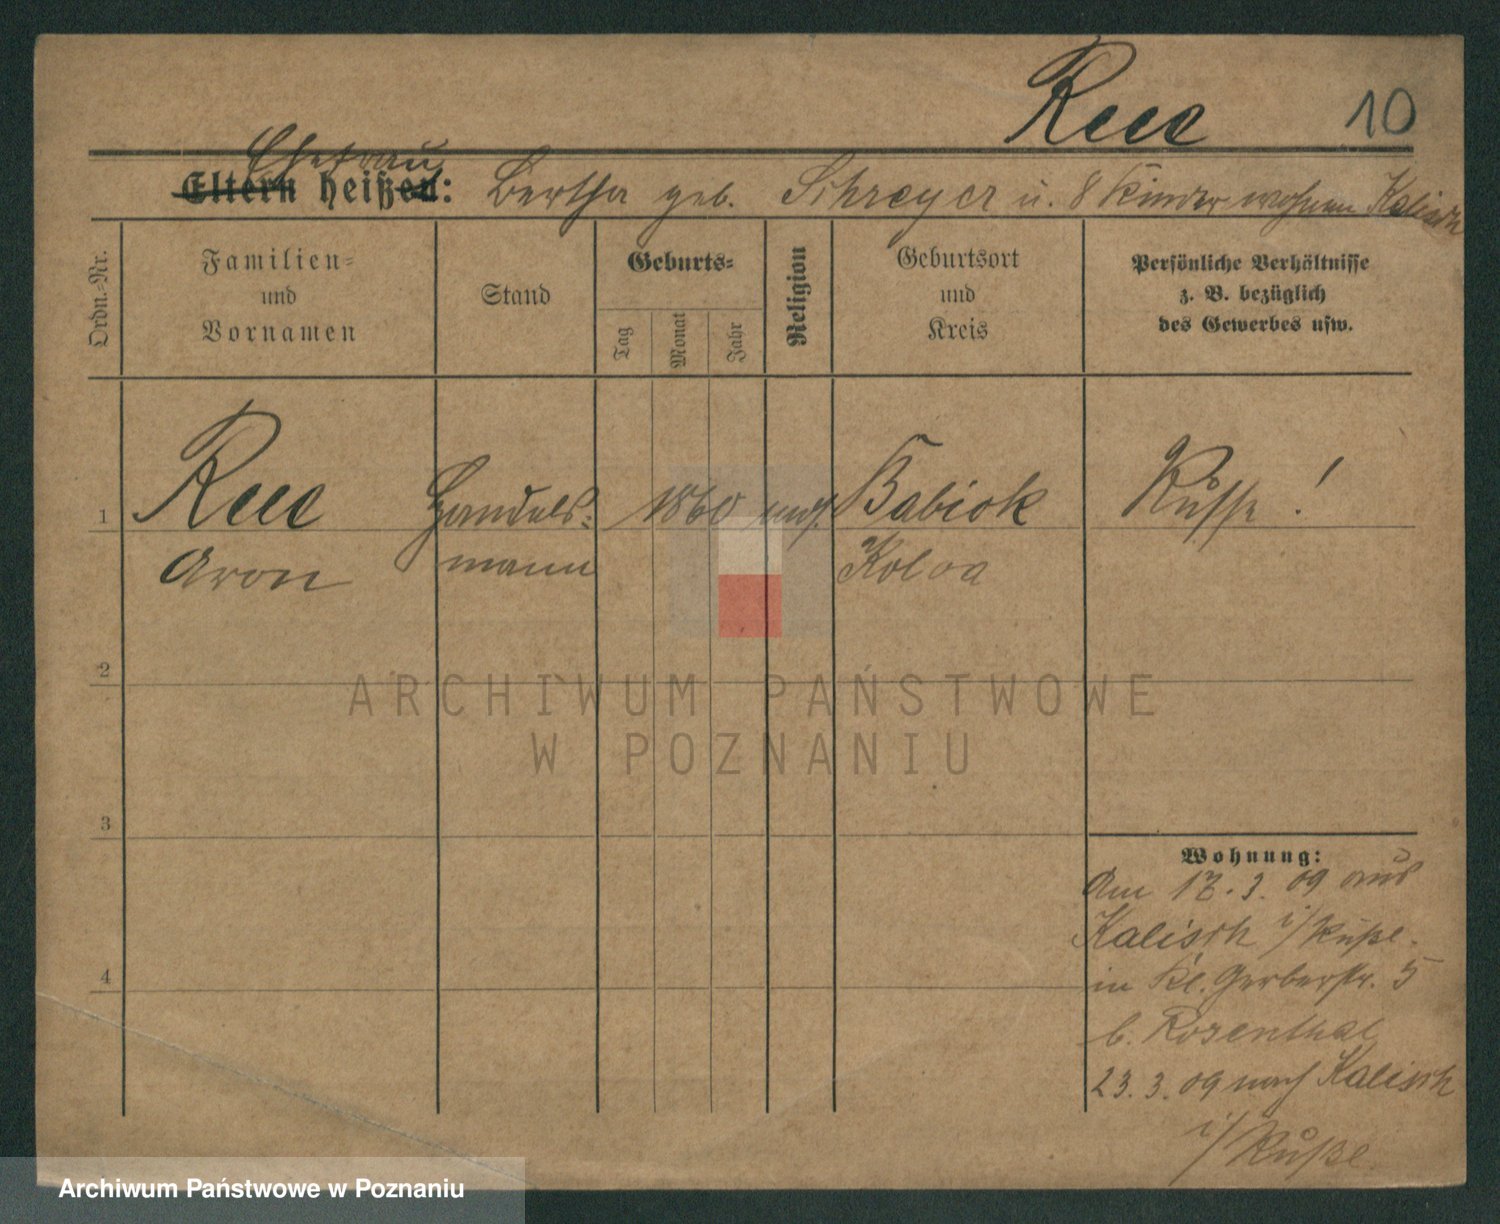 Reec
10
Ehefrau
Eltern heißen: Bertha geb. Schreyer u. 8 Kinder wohnen Kalisch
Ordn.-Nr.
Familien-
und
Vornamen
Stand
Geburts-
Tag
Monat
Jahr
Religion
Geburtsort
und
Kreis
Persönliche Verhältnisse
z. B. bezüglich
des Gewerbes usw.
1
Reec
Aron
Handels-
mann
1860
mos.
Babiok
Koloa
Russe!
2
3
4
Wohnung:
Am 17.3.09 aus
Kalisch i/Rußl.
in Kl. Gerberstr. 5
b. Rosenthal
23.3.09 nach Kalisch
i/Rußl.
ARCHIWUM PAŃSTWOWE
W POZNANIU
Archiwum Państwowe w Poznaniu